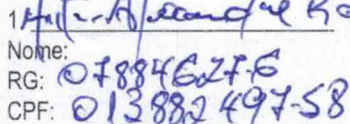 1
Nome:
RG: 07884627-6
CPF: 013882497-58